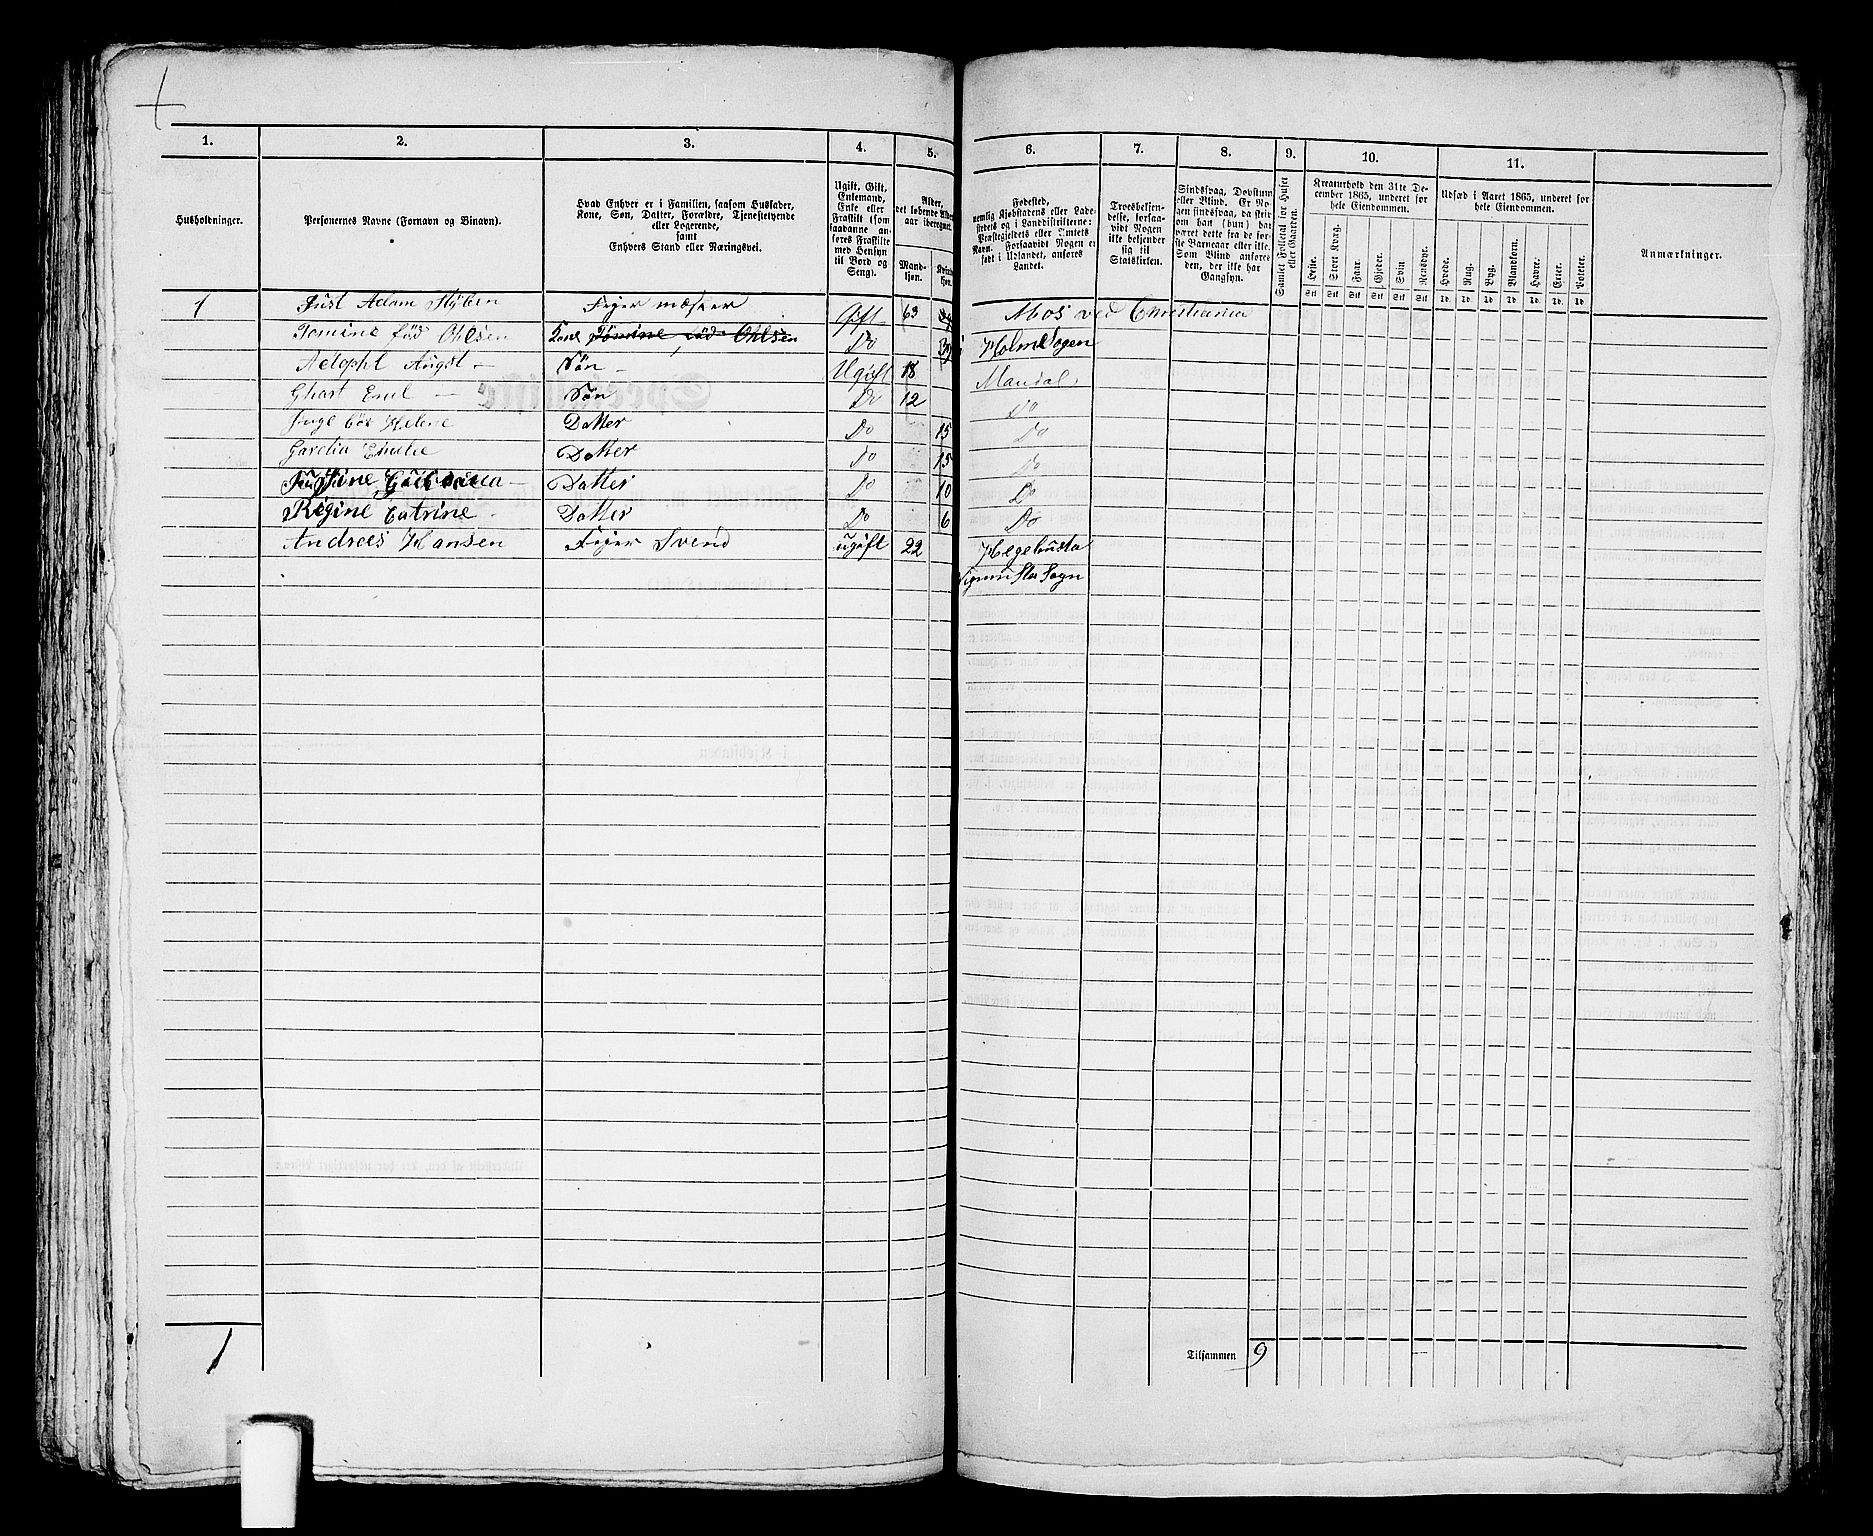 1. 2. 3. 4. 5. 6. 7. 8. 9. 10. 11.
Husholdninger.
Personernes Navne (Fornavn og Binavn).
Hvad Enhver er i Familien, saasom Husfader,
Kone, Søn, Datter, Forældre, Tjenestetyende
eller Logerende,
samt
Enhvers Stand eller Næringsvei.
Ugift, Gift,
Enkemand,
Enke eller
Fraskilt (som
saadanne an-
føres Fraskilte
med Hensyn
til Bord og
Seng).
Alder,
det løbende Alders-
aar iberegnet.
Mand-
kjøn.
Kvinde-
kjøn.
Fødested,
nemlig Kjøbstadens eller Lade-
stedets og i Landdistrikterne:
Præstegjeldets eller Amtets
Navn. Forsaavidt Nogen er
født i Udlandet, anføres
Landet.
Troesbekjen-
delse, forsaa-
vidt Nogen
ikke bekjender
sig til
Statskirken.
Sindssvag, Døvstum
eller Blind. Er No-
gen sindssvag, da skri-
ves om han (hun) har
været dette fra de før-
ste Barneaar eller ikke.
Som Blind anføres
den, der ikke har
Gangsyn.
Samlet Folketal for Huset
eller Gaarden.
Kreaturhold den 31te De-
cember 1865, underet for
hele Eiendommen.
Heste. Stort Kvæg. Faar. Gjeder. Svin. Rensdyr.
Stk Stk Stk Stk Stk Stk
Udsæd i Aaret 1865, underet for
hele Eiendommen.
Hvede. Rug. Byg. Blandkorn. Havre. Erter. Poteter.
Td. Td. Td. Td. Td. Td. Td.
Anmærkninger.
1 Just Adam Stÿben Fejer mæster Gift 63 Mos ved Christiania
Tomine föd Ohlsen Kone Tomine föd Ohlsen Do Holme Sogen
Adolpht Augst Søn Ugift 18 Mandal
Emil Søn Do 12 Do
Helene Datter Do 15 Do
Emelie Datter Do 15 Do
Datter Do 10 Do
Regine Catrine Datter Do 6 Do
Andrees Hansen Fejer Svend ugift 22
Sogn
1
Tilsammen 9